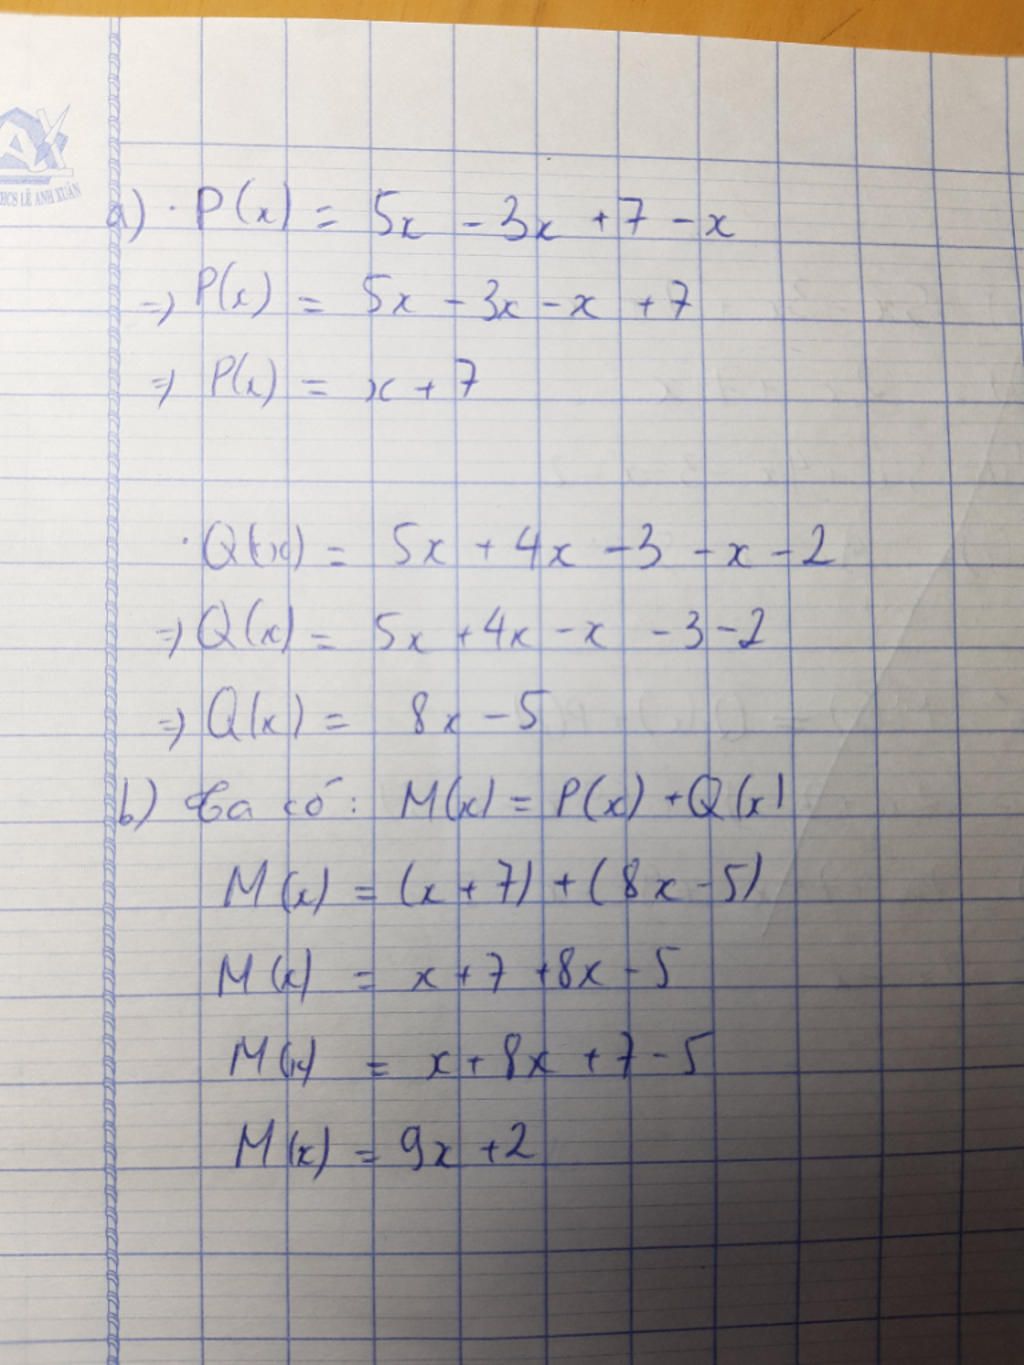 HCS LÊ ANH XUÂN
a) · P(x) = 5x - 3x + 7 - x
=> P(x) = 5x - 3x - x + 7
=> P(x) = x + 7
· Q(x) = 5x + 4x - 3 - x - 2
=> Q(x) = 5x + 4x - x - 3 - 2
=> Q(x) = 8x - 5
b) Ta có: M(x) = P(x) + Q(x)
M(x) = (x + 7) + (8x - 5)
M(x) = x + 7 + 8x - 5
M(x) = x + 8x + 7 - 5
M(x) = 9x + 2